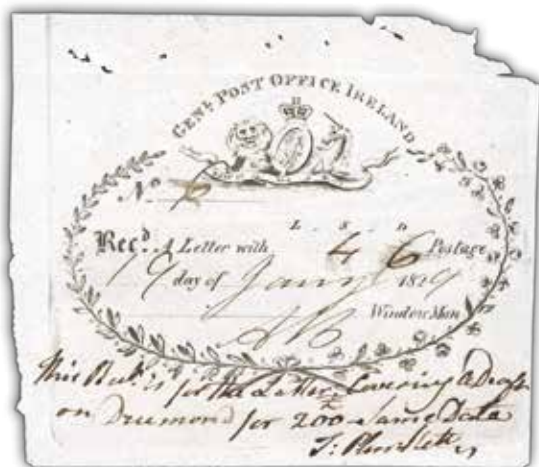 GENL POST OFFICE IRELAND
No 6
L S D
Recd. A Letter with 4 6 Postage
day of Jany 1819
Window Man
This Rect. is for the Letter Covering a Draft
on Drumond for 200 Same Date